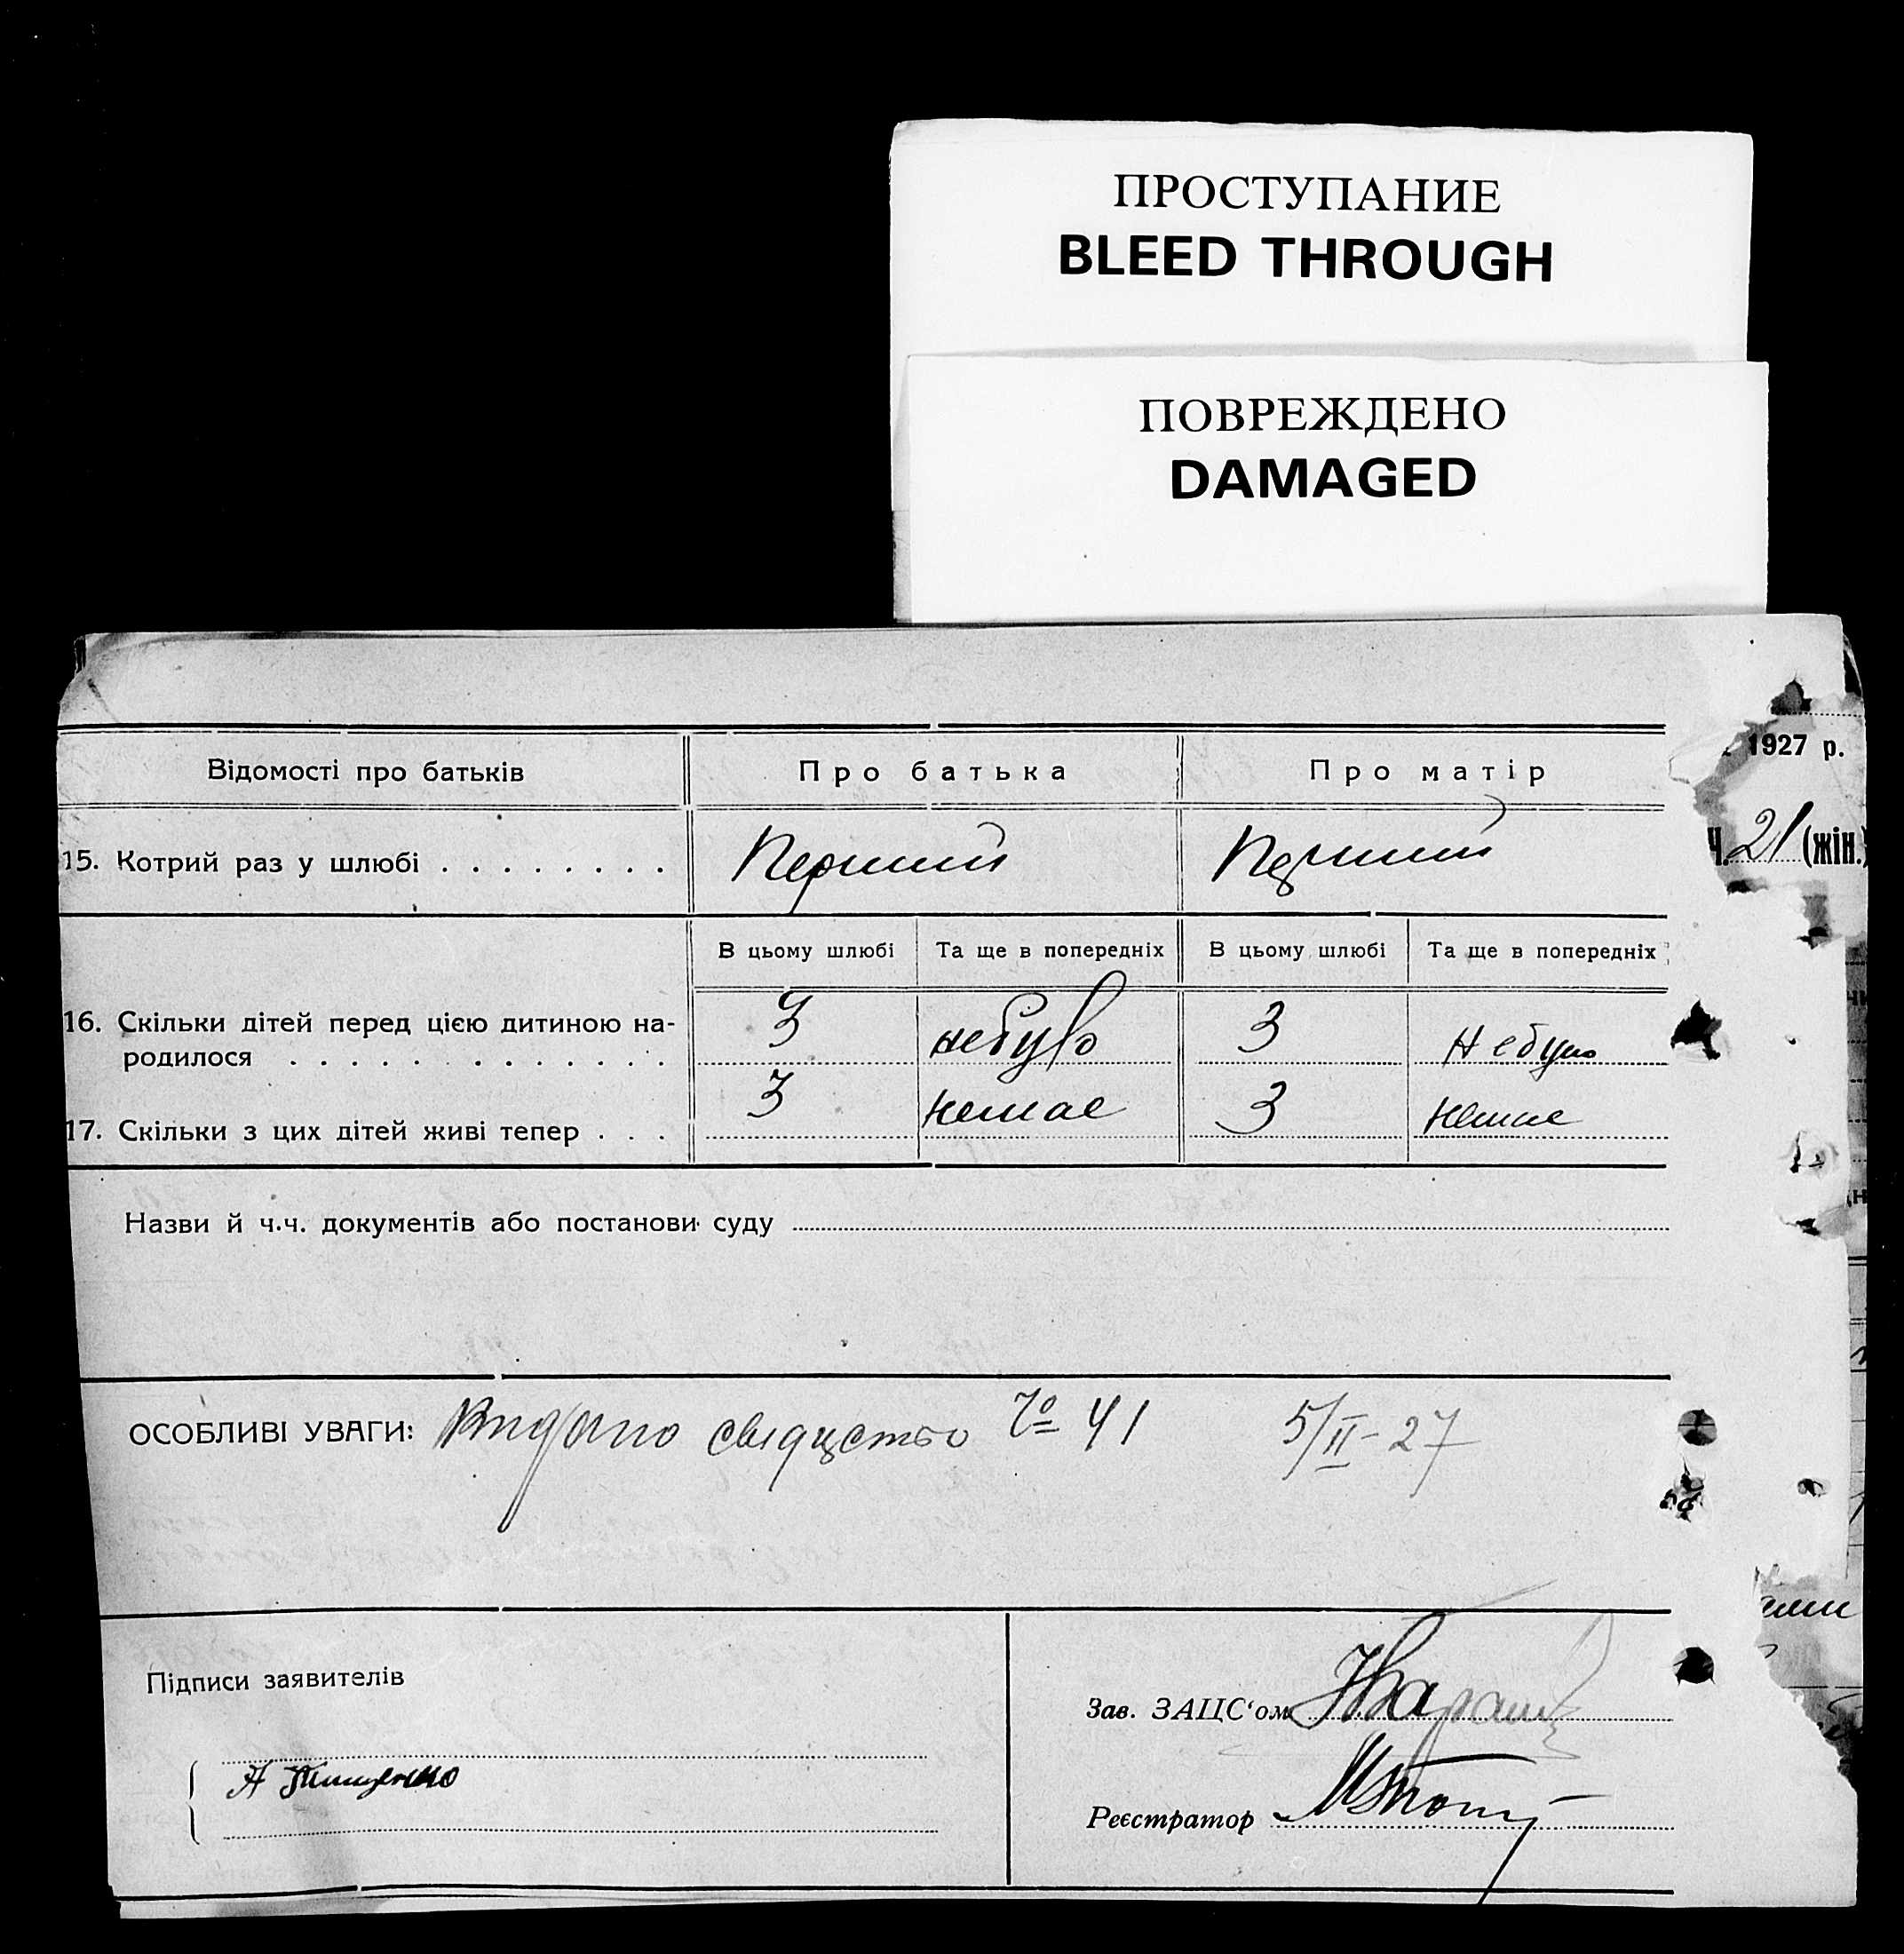 ПРОСТУПАНИЕ
BLEED THROUGH
ПОВРЕЖДЕНО
DAMAGED
1927 р.
Ч. 21 (жін.)
Відомості про батьків Про батька Про матір
15. Котрий раз у шлюбі . . . . . . . . Перший Перший
В цьому шлюбі Та ще в попередніх В цьому шлюбі Та ще в попередніх
16. Скільки дітей перед цією дитиною на-
родилося . . . . . . . . . . . . 3 небуло 3 Небуло
17. Скільки з цих дітей живі тепер . . . 3 немає 3 немає
Назви й ч.ч. документів або постанови суду
ОСОБЛИВІ УВАГИ: Видано свідуцтво Чо 41 5/II-27
Підписи заявителів
А Тищенко
Зав. ЗАЦС‘ом
Реєстратор